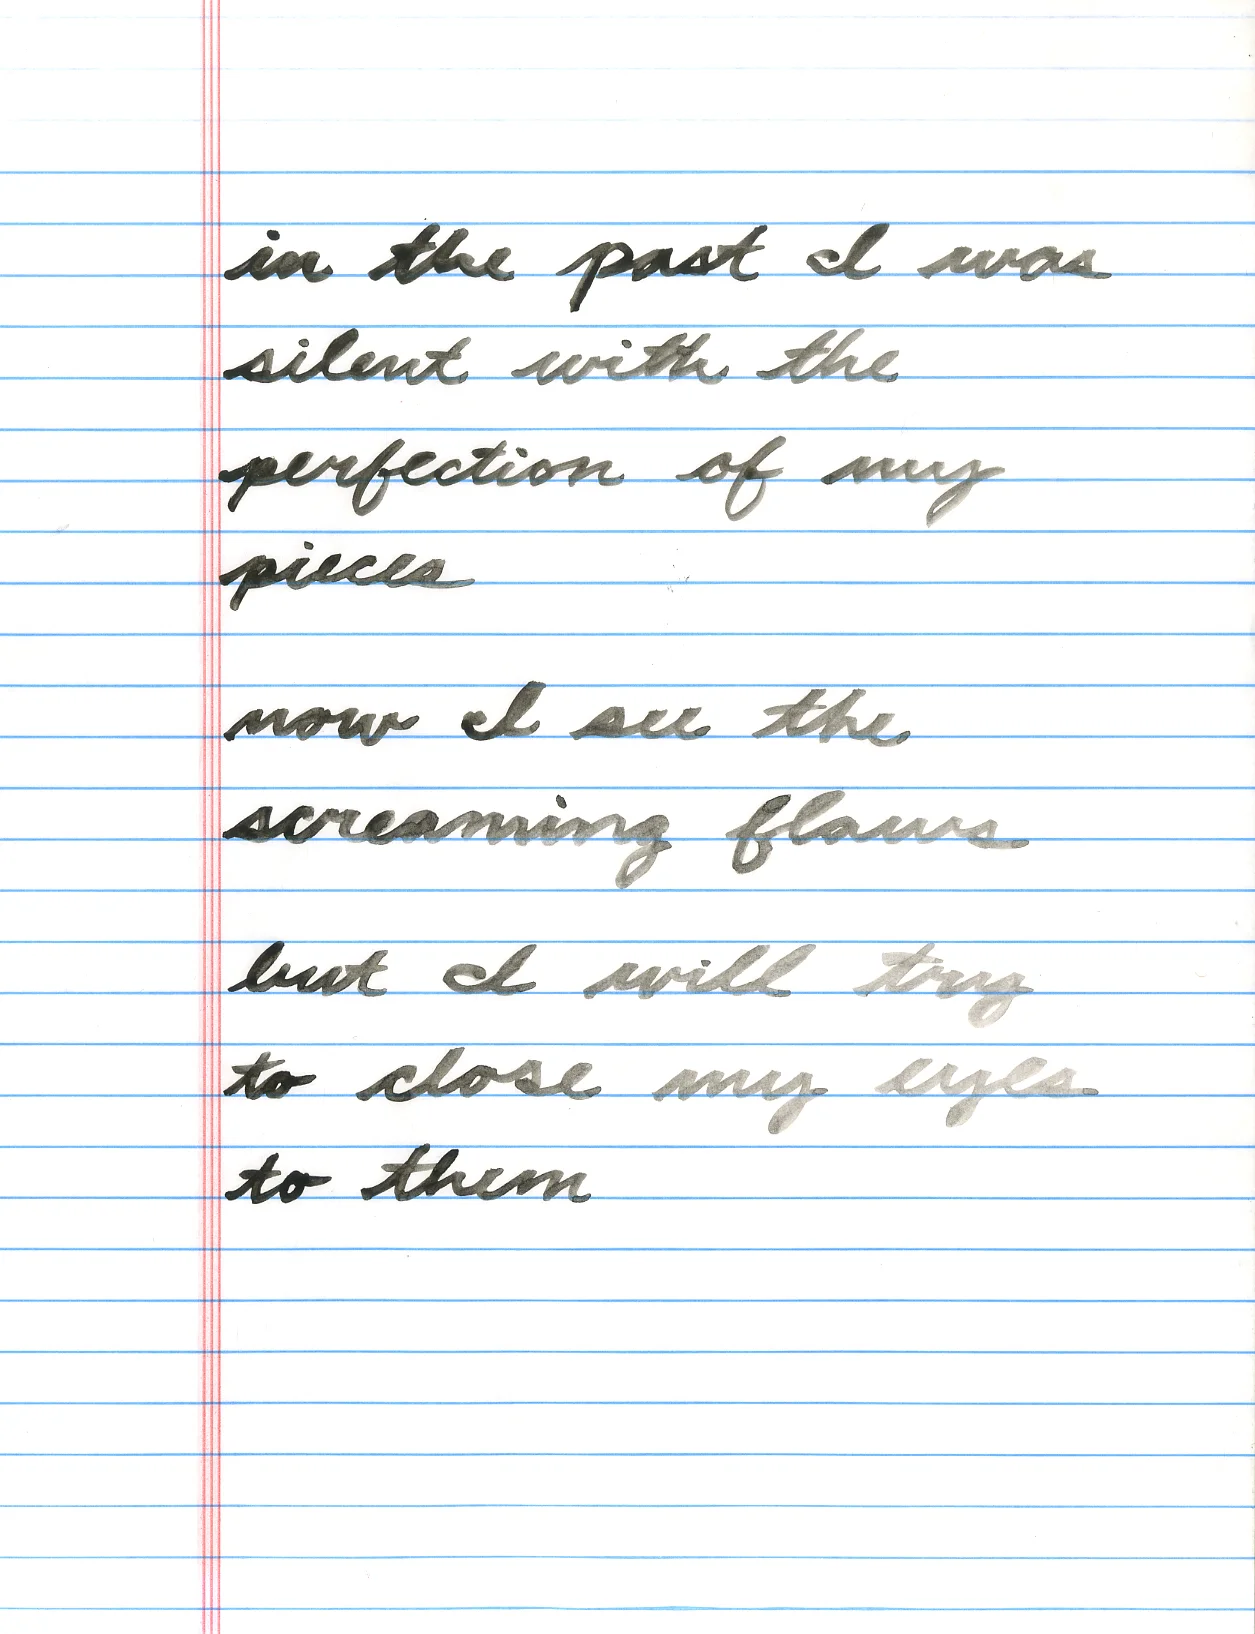 in the past I was
silent with the
perfection of my
pieces
now I see the
screaming flaws
but I will try
to close my eyes
to them